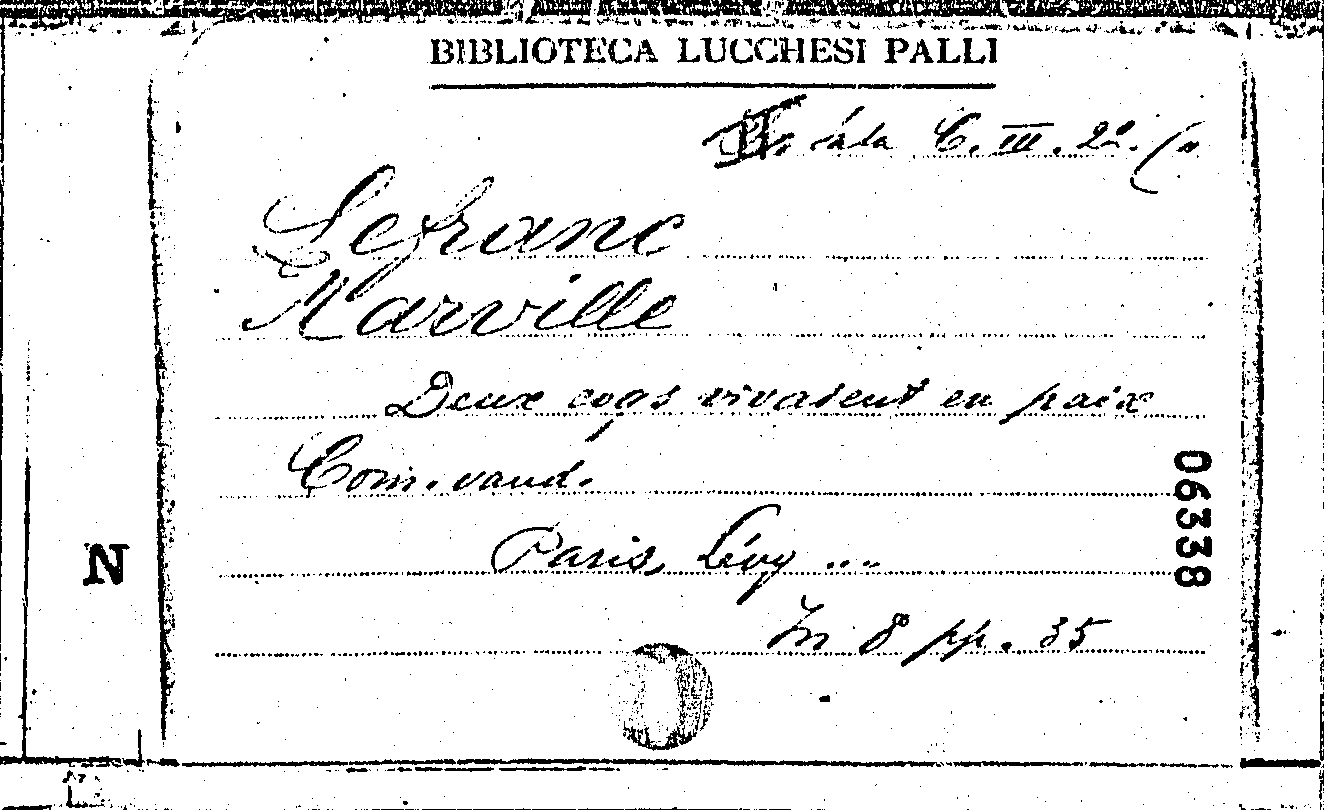 BIBLIOTECA LUCCHESI PALLI
Sala C. III. 22. (
Lefranc
Marville
Deux coqs vivaient en paix
Com. vaud.
Paris, Lévy ...
In 8° pp. 35
06338
N